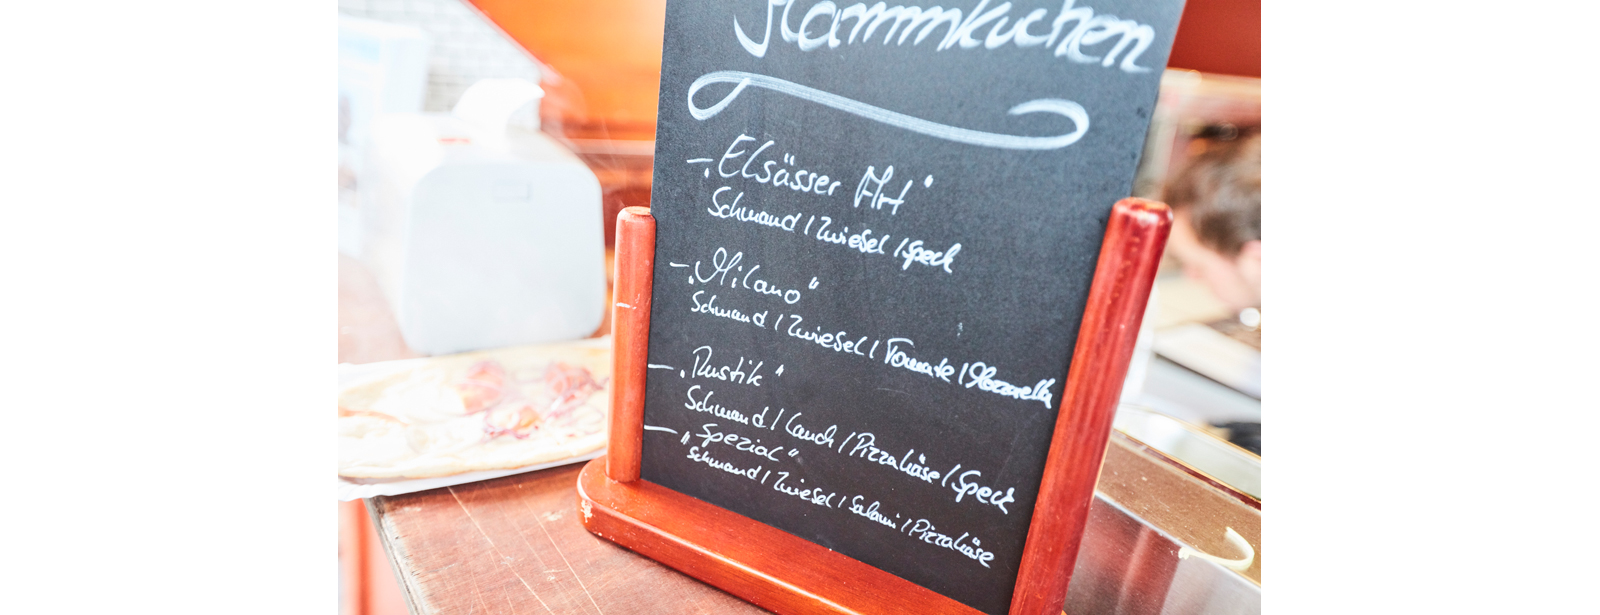 Flammkuchen
- "Elsässer Art"
Schmand / Zwiebel / Speck
- "Milano"
Schmand / Zwiebel / Tomate / Mozzarella
- "Rustik"
Schmand / Lauch / Pizzakäse / Speck
- "Spezial"
Schmand / Zwiebel / Salami / Pizzakäse